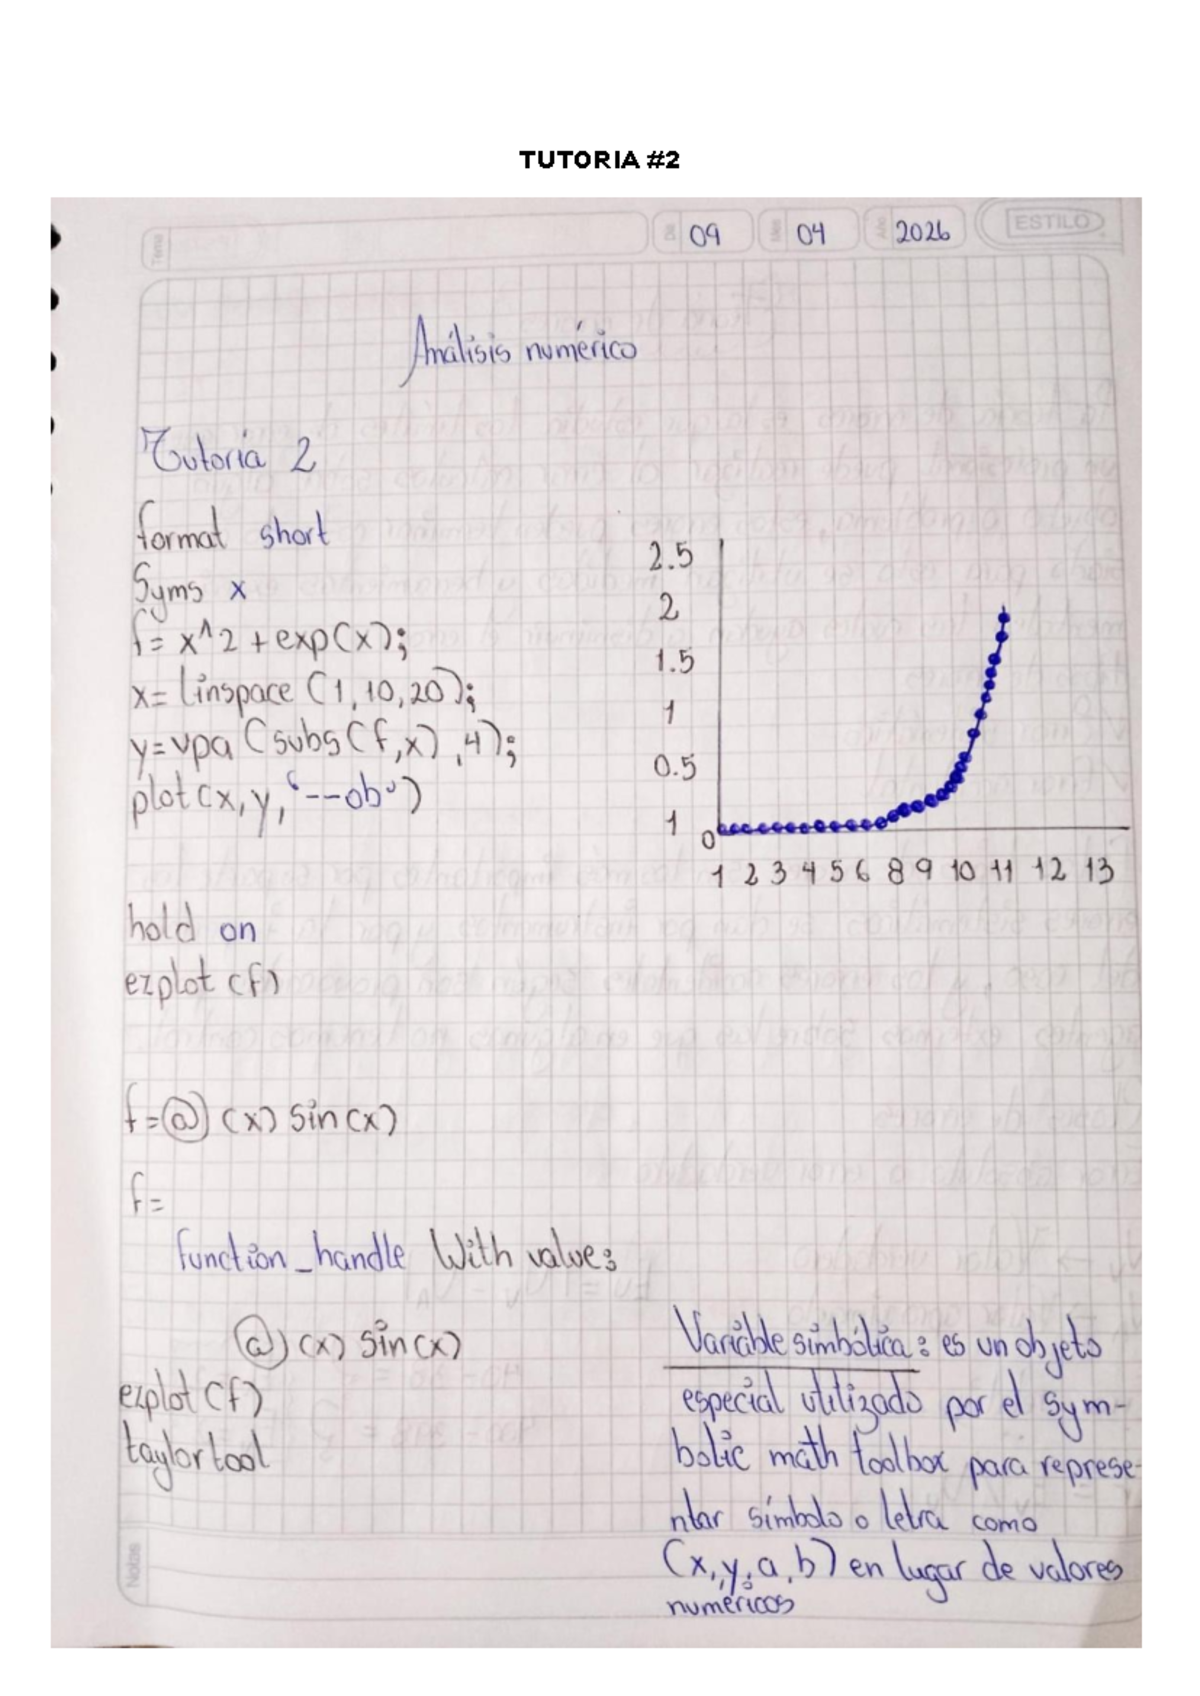 TUTORIA #2
Tema
Día 09 Mes 04 Año 2026 ESTILO
Análisis numérico
Tutoria 2
format short
Syms x
f= x^2 + exp(x);
x= linspace (1,10,20);
y=vpa (subs(f,x),4);
plot(x,y,'--ob')
2.5
2
1.5
1
0.5
1
0
1 2 3 4 5 6 8 9 10 11 12 13
hold on
ezplot (f)
f=@ (x) sin(x)
f=
function_handle With value:
@ (x) sin(x)
ezplot (f)
taylortool
Variable simbólica: es un objeto
especial utilizado por el sym-
bolic math toolbox para represe-
ntar símbolo o letra como
(x,y,a,b) en lugar de valores
numéricos
Notas